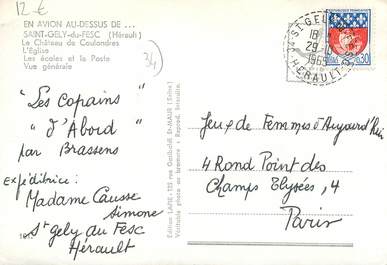 12 €
EN AVION AU-DESSUS DE ...
SAINT-GELY-du-FESC (Hérault)
Le Château de Coulondres
L'Eglise
Les écoles et la Poste
Vue générale
34
"Les copains"
"d'Abord"
par Brassens
Expéditrice :
Madame Causse
Simone
St gely au Fesc
Hérault
Edition LAPIE - 122 rue Garibaldi St-MAUR (Seine)
Véritable photo au bromure - Reprod. interdite.
ST GELY
18
29-
1965
HERAULT
0,30
Jeux de Femmes d'Aujourd'hui
4 Rond Point des
Champs Elysées, 4
Paris